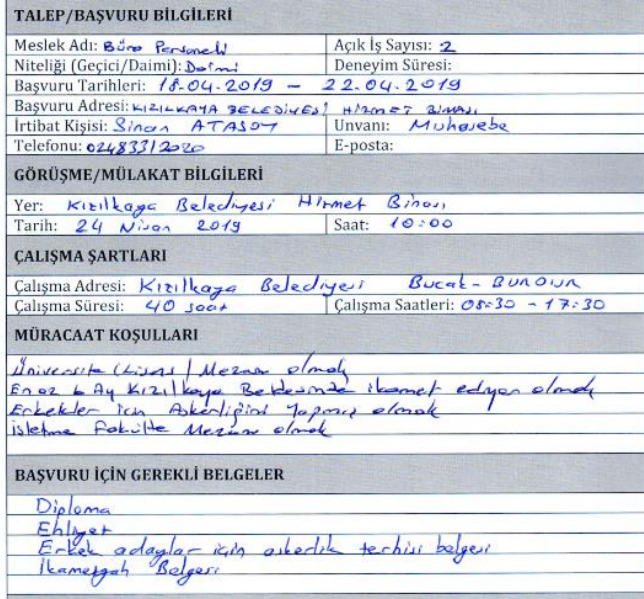 TALEP/BAŞVURU BİLGİLERİ
Meslek Adı: Büro Personeli Açık İş Sayısı: 2
Niteliği (Geçici/Daimi): Daimi Deneyim Süresi:
Başvuru Tarihleri: 18.04.2019 – 22.04.2019
Başvuru Adresi: KIZILKAYA BELEDİYESİ HİZMET BİNASI
İrtibat Kişisi: Sinan ATASOY Unvanı: Muhasebe
Telefonu: 02483312020 E-posta:
GÖRÜŞME/MÜLAKAT BİLGİLERİ
Yer: Kızılkaya Belediyesi Hizmet Binası
Tarih: 24 Nisan 2019 Saat: 10:00
ÇALIŞMA ŞARTLARI
Çalışma Adresi: Kızılkaya Belediyesi Bucak - BURDUR
Çalışma Süresi: 40 saat Çalışma Saatleri: 08:30 - 17:30
MÜRACAAT KOŞULLARI
Üniversite (Lisans) Mezunu olmak
En az 6 Ay Kızılkaya Beldesinde ikamet ediyor olmak
Erkekler için Askerliğini Yapmış olmak
İşletme Fakülte Mezunu olmak
BAŞVURU İÇİN GEREKLİ BELGELER
Diploma
Ehliyet
Erkek adaylar için askerlik terhis belgesi
İkametgah Belgesi